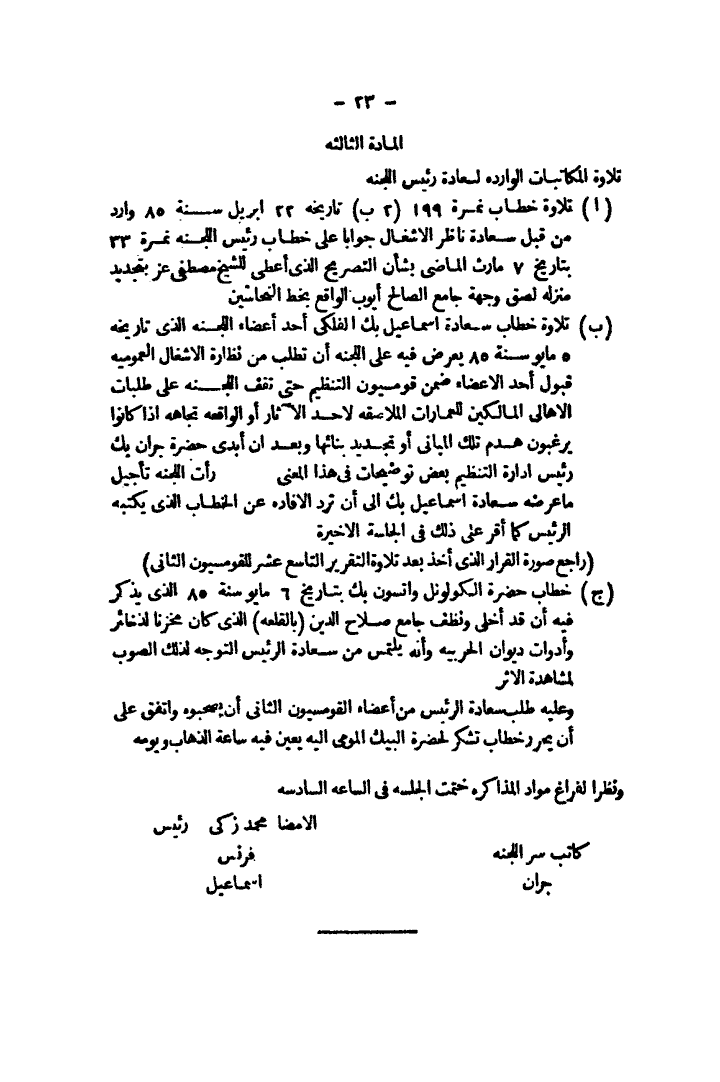 - ٢٣ -
المادة الثالثه
تلاوة المكاتبات الوارده لسعادة رئيس اللجنه
(ا) تلاوة خطاب نمرة ١٩٩ (٢ ب) تاريخه ٢٢ ابريل سنة ٨٥ وارد
من قبل سعادة ناظر الاشغال جوابا على خطاب رئيس اللجنه نمرة ٣٣
بتاريخ ٧ مارث الماضى بشأن التصريح الذى أعطى للشيخ مصطفى عز بتجديد
منزله لصق وجهة جامع الصالح أيوب الواقع بخط النحاسين
(ب) تلاوة خطاب سعادة اسماعيل بك الفلكى أحد أعضاء اللجنه الذى تاريخه
٥ مايو سنة ٨٥ يعرض فيه على اللجنه أن تطلب من نظارة الاشغال العموميه
قبول أحد الاعضاء ضمن قومسيون التنظيم حتى تقف اللجنه على طلبات
الاهالى المالكين للعمارات الملاصقه لاحد الآثار أو الواقعه تجاهه اذا كانوا
يرغبون هدم تلك المبانى أو تجديد بنائها وبعد ان أبدى حضرة جران بك
رئيس ادارة التنظيم بعض توضيحات فى هذا المعنى رأت اللجنه تأجيل
ماعرضه سعادة اسماعيل بك الى أن ترد الافاده عن الخطاب الذى يكتبه
الرئيس كما أقر على ذلك فى الجلسة الاخيرة
(راجع صورة القرار الذى أخذ بعد تلاوة التقرير التاسع عشر للقومسيون الثانى)
(ج) خطاب حضرة الكولونل واتسون بك بتاريخ ٦ مايو سنة ٨٥ الذى يذكر
فيه أن قد أخلى ونظف جامع صلاح الدين (بالقلعه) الذى كان مخزنا لذخائر
وأدوات ديوان الحربيه وأنه يلتمس من سعادة الرئيس التوجه لذلك الصوب
لمشاهدة الاثر
وعليه طلب سعادة الرئيس من أعضاء القومسيون الثانى أن يصحبوه واتفق على
أن يحرر خطاب تشكر لحضرة البيك المومى اليه يعين فيه ساعة الذهاب ويومه
ونظرا لفراغ مواد المذاكره ختمت الجلسه فى الساعه السادسه
الامضا محمد زكى رئيس
كاتب سر اللجنه فرنس
جران اسماعيل